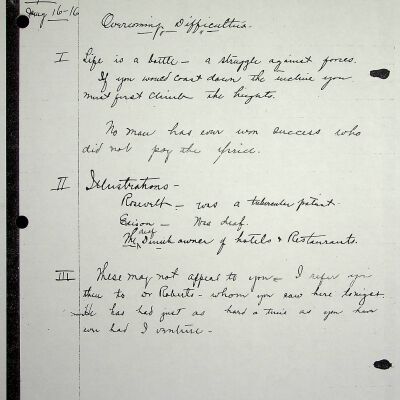 Aug 16-16
Overcoming Difficulties.
I Life is a battle – a struggle against forces.
If you would coast down the incline you
must first climb the heights.
No man has ever won success who
did not pay the price.
II Illustrations –
Rosevelt – was a tubercular patient.
Edison – Was deaf.
The deaf owner of hotels & Restaurants.
III These may not appeal to you – I refer you
then to Dr Roberts – whom you saw here tonight.
He has had just as hard a time as you have
ever had I venture –